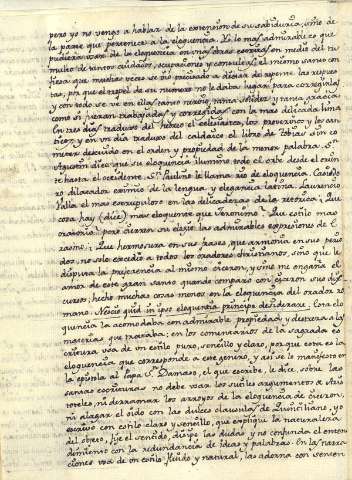 pero yo no vengo a hablar de la extension de su sabiduria, sino de
la parte que pertenece a la eloquencia. Y lo mas admirable es que
pudiera usar de la eloquencia en unas obras escritas en medio del tu-
multo de tantos cuidados, ocupaciones y consultas. el mismo santo con-
fiesa que muchas veces se vio precisado a dictar de repente las respues-
tas, por que el tropel de su numero no le daba lugar para corregirlas
y con todo se ve en ellas tanto nervio, tanta solidez y tanta gracia
como si fueran trabajadas y corregidas con la mas delicada lima
En tres dias tradujo del hebreo el eclesiastes, los proverbios y los can-
ticos: y en un dia tradujo del caldaico el libro de Tobias sin co-
meter descuido en el orden y propiedad de la menor palabra. Sⁿ
Agustin dice que su eloquencia ilumino todo el orbe desde el orien-
te hasta el occidente. Sⁿ Paulino le llama rio de eloquencia. Casiodo
ro dilatador eximio de la lengua y elegancia latina. Laurencio
Valla el mas escrupuloso en las delicadezas de la retorica: Que
cosa hay (dice) mas eloquente que Geronimo? Que estilo mas
oratorio? pero cierren su elogio las admirables expresiones de E-
rasmo: Que hermosura en sus frases, que armonia en sus perio-
dos, no solo excedio a todos los oradores christianos, sino que le
disputa la preferencia al mismo ciceron, y si no me engaña el
amor de este gran santo quando comparo con ciceron sus dis-
cursos, hecho muchas cosas menos en la eloquencia del orador ro
mano. Nescio quid in ipso eloquentiæ principe desiderare. Esta elo
quencia la acomodaba con admirable propiedad y destreza a las
materias que trataba: en los comentarios de la sagrada es-
critura usa de un estilo puro, sencillo y claro, por que esta es la
eloquencia que corresponde a este genero, y asi se lo manifiesto en
la epistola al Papa S. Damaso, el que escribe, le dice, sobre las
santas escrituras no debe usar los sutiles argumentos de Aris
toteles, ni derramar los arroyos de la eloquencia de ciceron,
ni alagar el oido con las dulces clausulas de Quintiliano, yo
escribo con estilo claro y sencillo, que explique la naturaleza
del objeto, fije el sentido, disipe las dudas y no confunda el enten
dimiento con la redundancia de ideas y palabras. En las narra-
ciones usa de un estilo fluido y natural, las adorna con senten